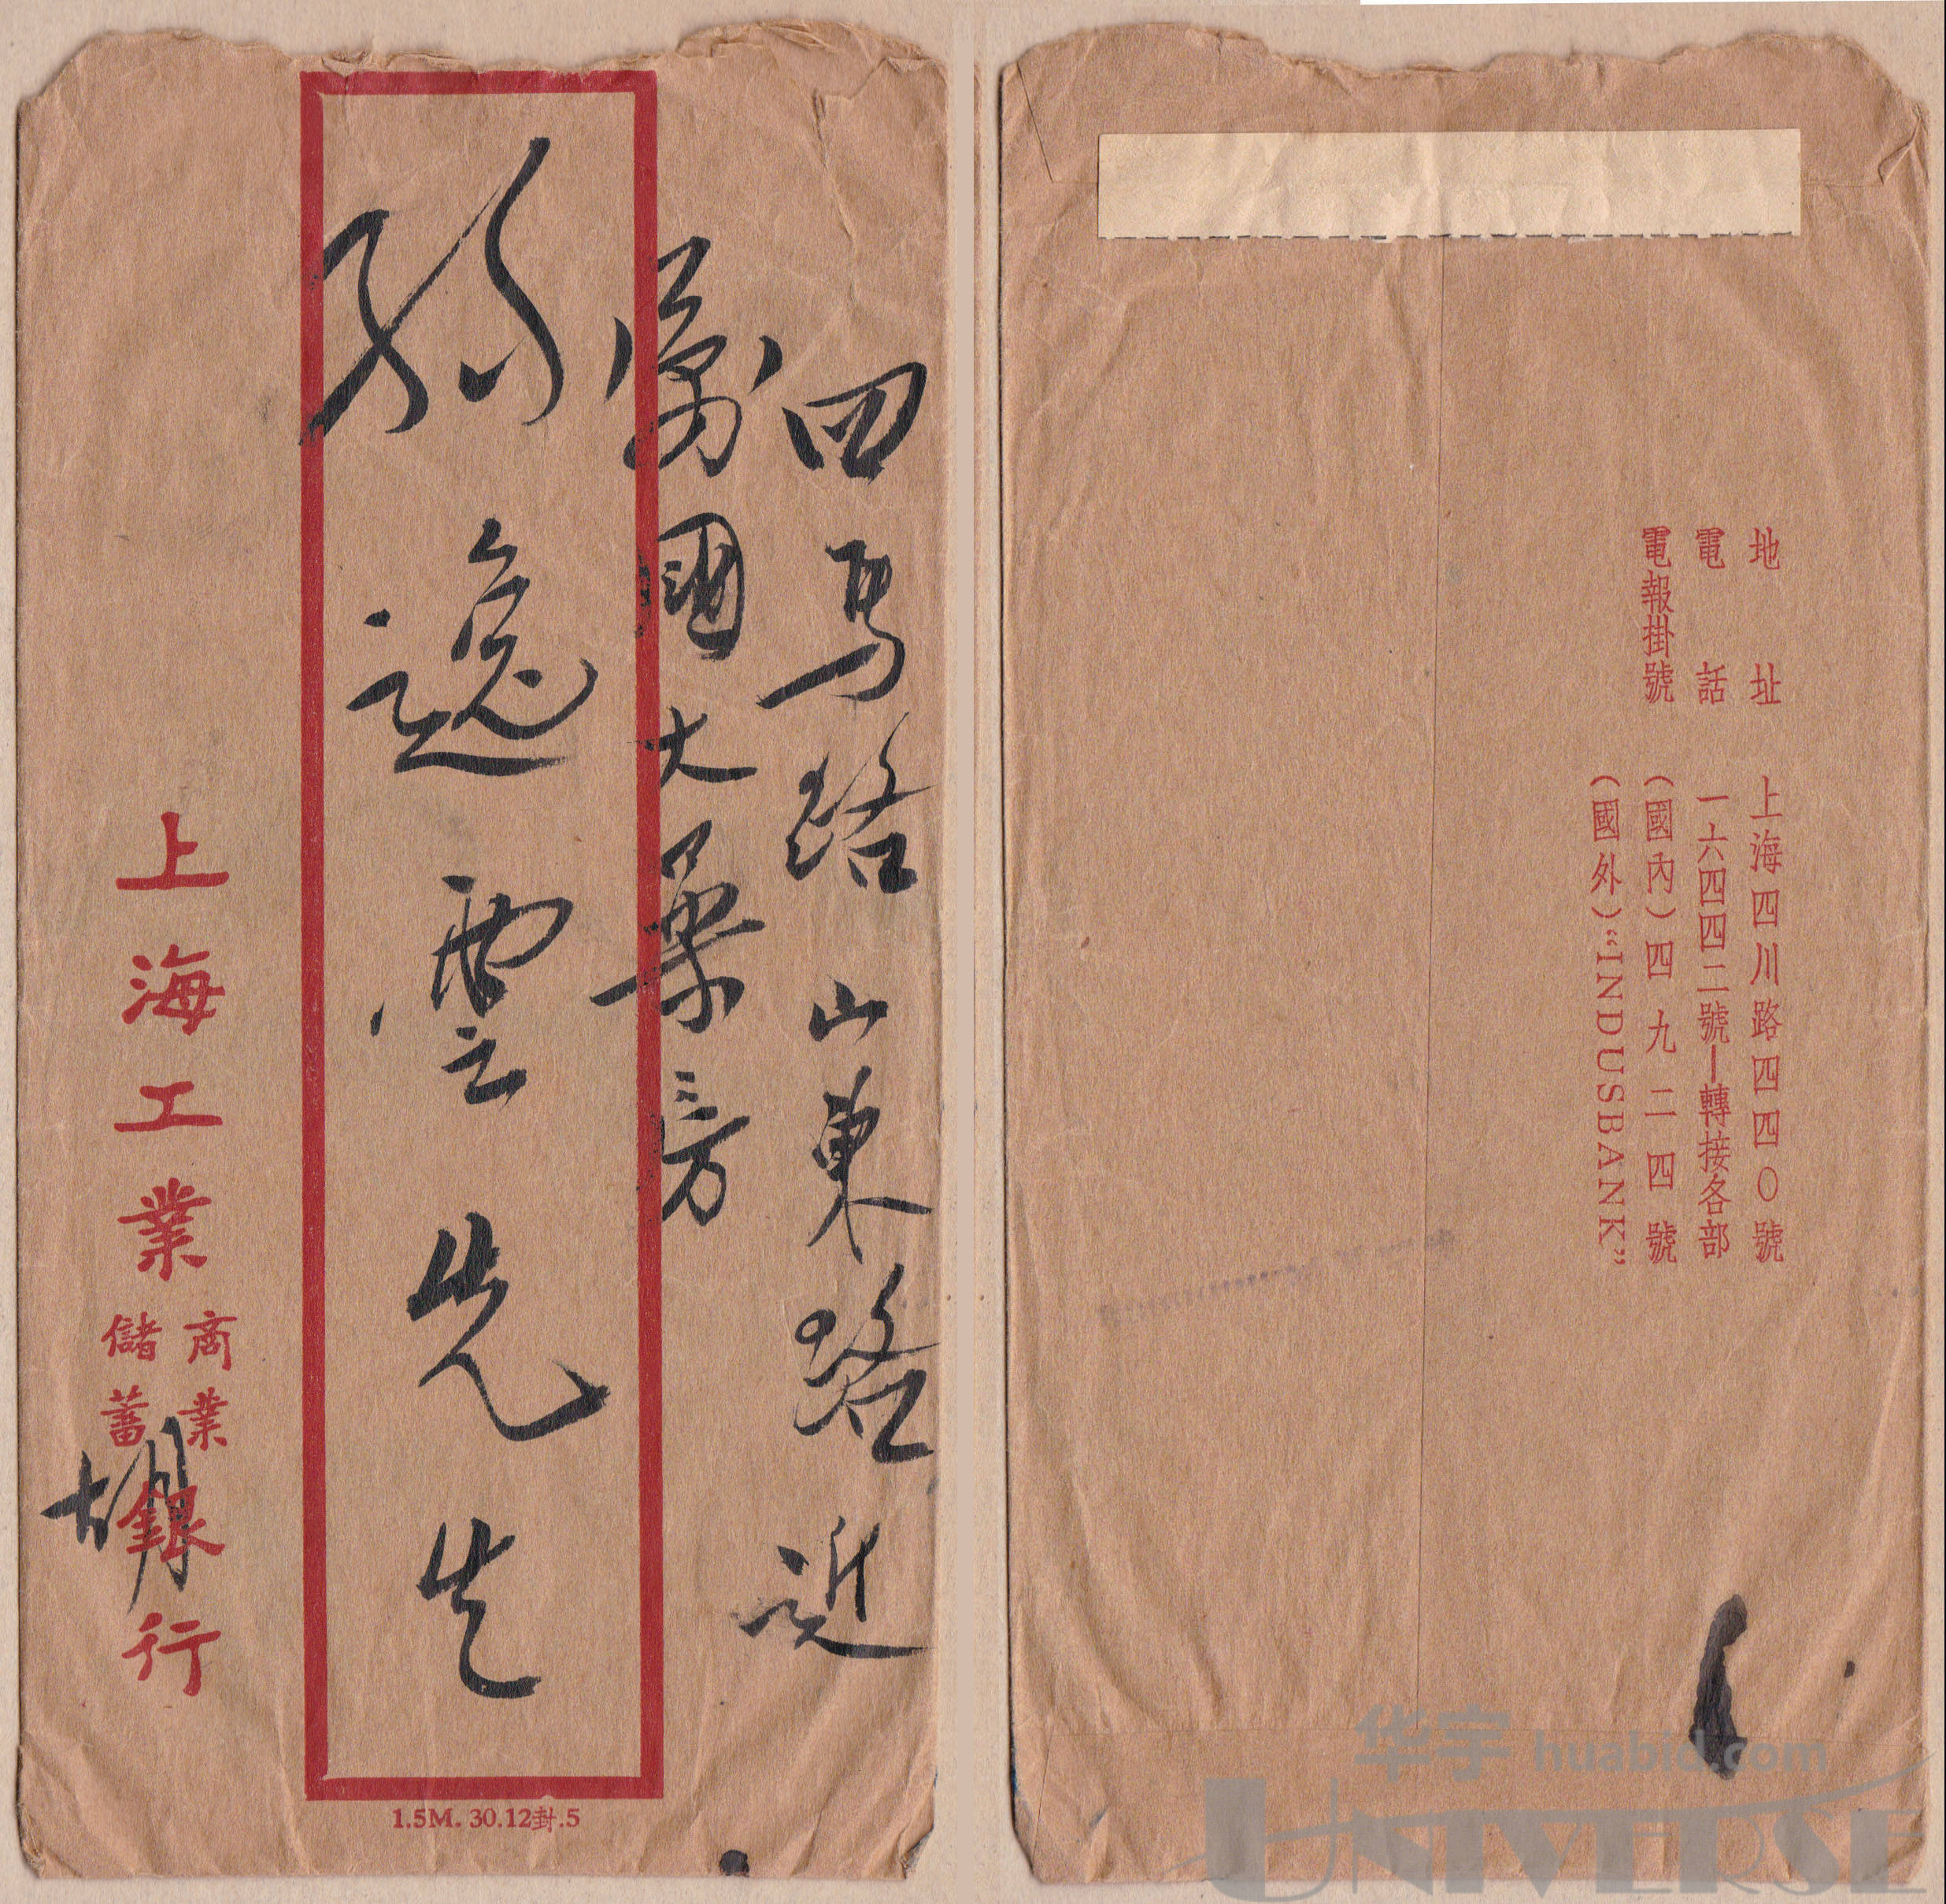 四馬路山東路近
萬國大藥房
逸雲先生
上海工業
商業
儲蓄
銀行
胡
1.5M. 30.12封.5
地址 上海四川路四四〇號
電話 一六四四二號—轉接各部
電報掛號 (國內)四九二四號
(國外)“INDUSBANK”
华宇 huabid.com
UNIVERSE